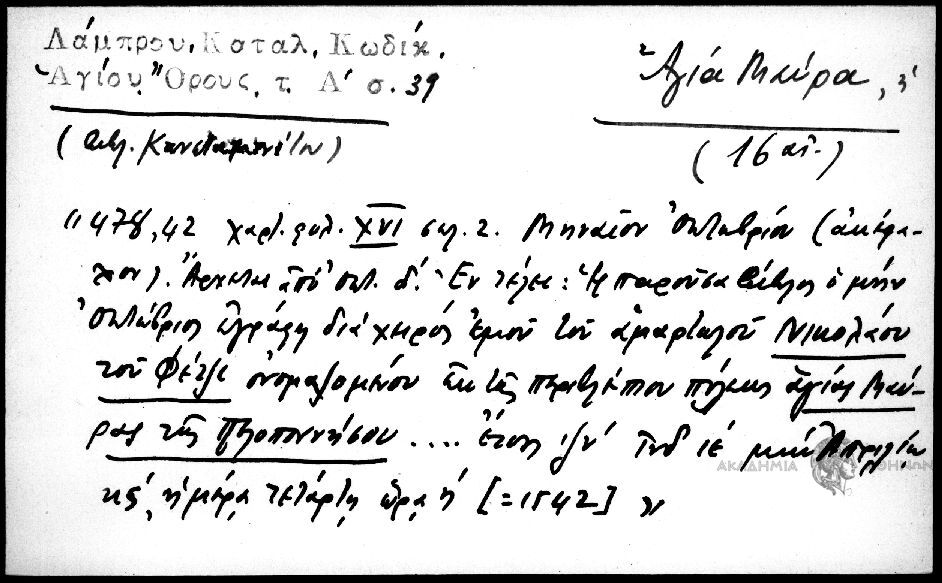 Λάμπρου, Καταλ, Κωδίκ.
Ἁγίου Ὄρους, τ. Α' σ. 39
Ἁγία Μαύρα, ἡ
(Βιβλ. Κωνσταμονίτου)
(16 αἰ.)
"478,42 χαρτ. φυλ. XVI σελ. 2. Μηναῖον Ὀκτωβρίου (ἀκέφα-
λον). Ἄρχεται ἀπὸ Ὀκτ. δ'. Ἐν τέλει: Ἡ παροῦσα βίβλος ὁ μήν
Ὀκτώβριος ἐγράφη διὰ χειρὸς ἐμοῦ τοῦ ἁμαρτωλοῦ Νικολάου
τοῦ Φέτζε ὀνομαζομένου ἐκ τῆς περιβλέπτου πόλεως ἁγίας Μαύ-
ρας τῆς Πελοποννήσου .... ἔτους ζν' ἰνδ ιε μηνὶ Ἀπριλίῳ
κς' ἡμέρᾳ τετάρτῃ ὥρᾳ η' [=1542] »
ΑΚΑΔΗΜΙΑ ΑΘΗΝΩΝ